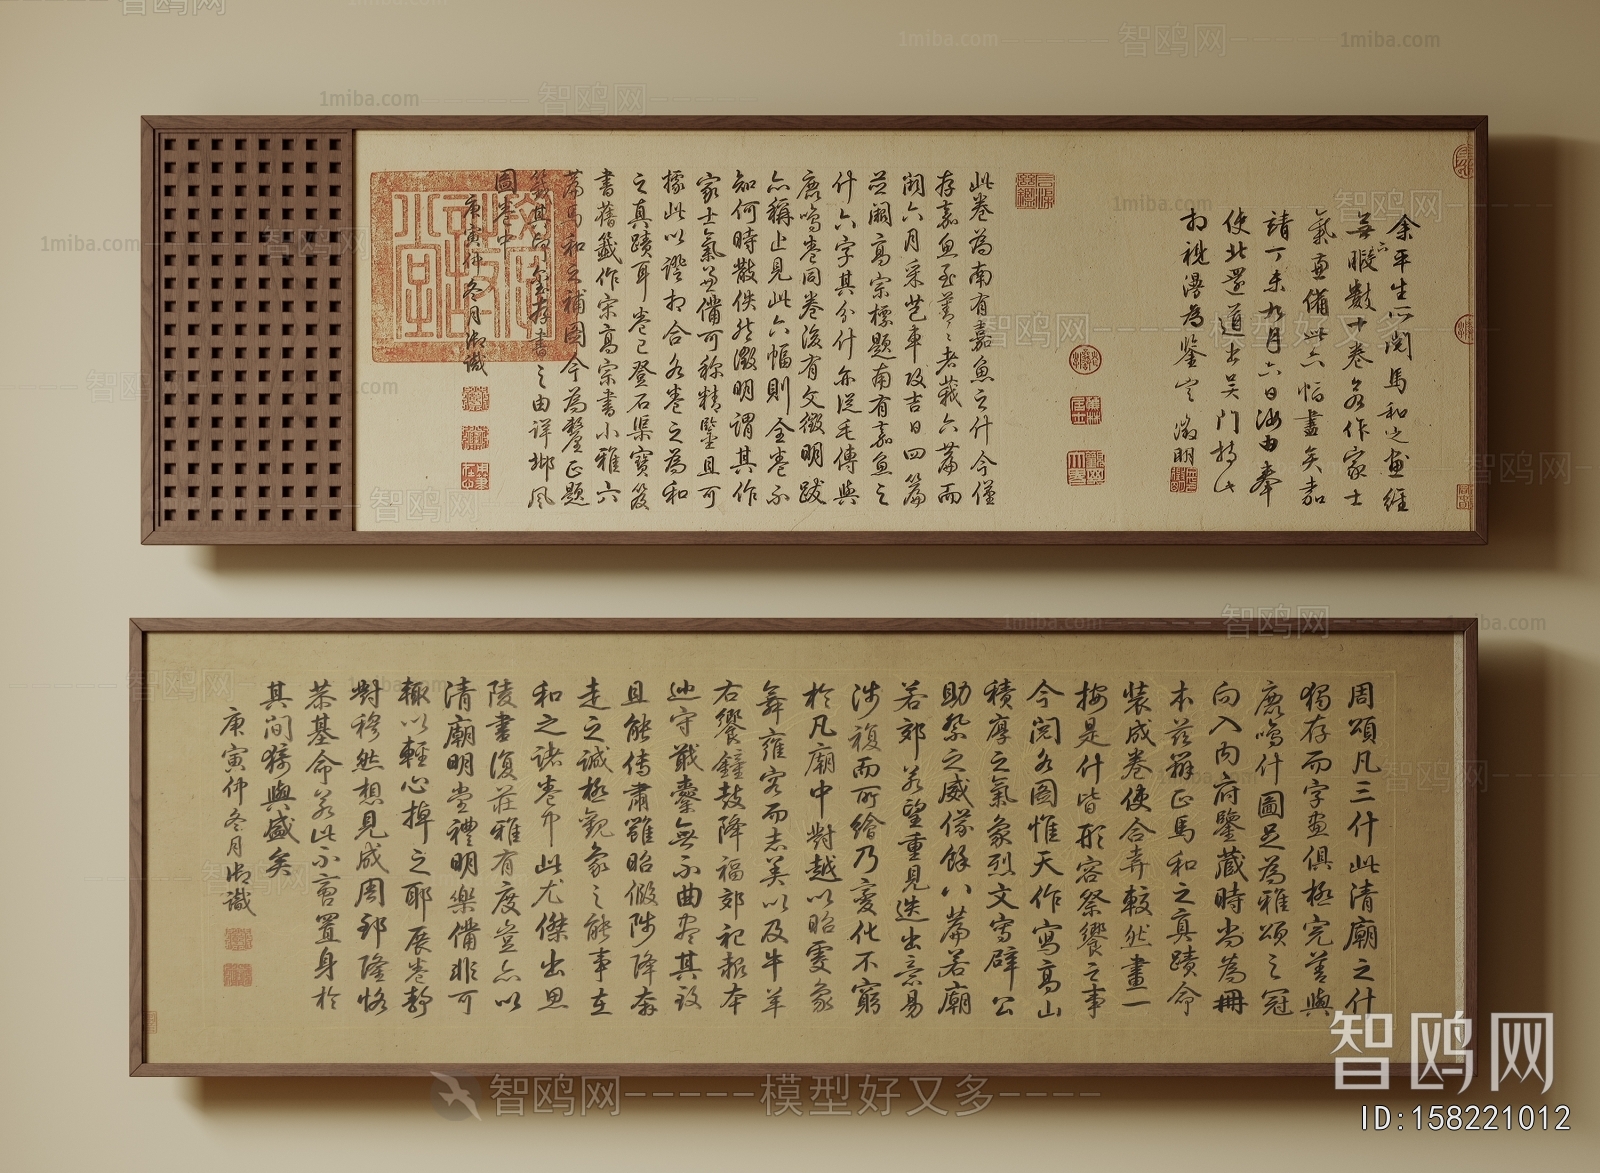 余平生所閱馬和之畫經
無暇數十卷名作家士
氣兼備此六幅盡矣嘉
請丁未九月六日汝由奉
使北還道出吳門持以
相視漫為鑒定 徵明
此卷為南有嘉魚之什今僅
存嘉魚至菁菁者莪六篇而
闕六月采芑車攻吉日四篇
並闕高宗標題南有嘉魚之
什六字其分什亦從毛傳與
鹿鳴卷同卷後有文徵明跋
亦稱止見此六幅則全卷不
知何時散佚然徵明謂其作
家士氣兼備可称精鑒且可
據此以證相合各卷之為和
之真蹟耳卷已登石渠寶笈
書舊籤作宋高宗書小雅六
篇馬和之補圖今為釐正題
簽其印識存書之由詳邶風
圖卷中
庚寅仲冬月御識
周頌凡三什此清廟之什
獨存而字畫俱極完善與
鹿鳴什圖足為雅頌之冠
向入內府鑒藏時尚為冊
本茲辨正馬和之真蹟命
裝成卷使合弆較然畫一
按是什皆形容祭饗之事
今閱各圖惟天作寫高山
積厚之氣象烈文寫辟公
助祭之威儀餘八篇若廟
若郊若望重見迭出意易
涉複而所繪乃變化不窮
於凡廟中對越以昭雯象
舞雍容而志美以及牛羊
右饗鐘鼓降福郊祀報本
巡守戢櫜無不曲盡其設
且能傳肅雝昭假陟降奔
走之誠極觀象之能事在
和之諸卷中此尤傑出思
陵書復莊雅有度豈亦以
清廟明堂禮明樂備非可
輒以輕心掉之耶展卷靜
對穆然想見成周郅隆恪
恭基命若此不啻置身於
其間猗與盛矣
庚寅仲冬月御識
智鸥网
ID:158221012
智鸥网-----模型好又多----
1miba.com